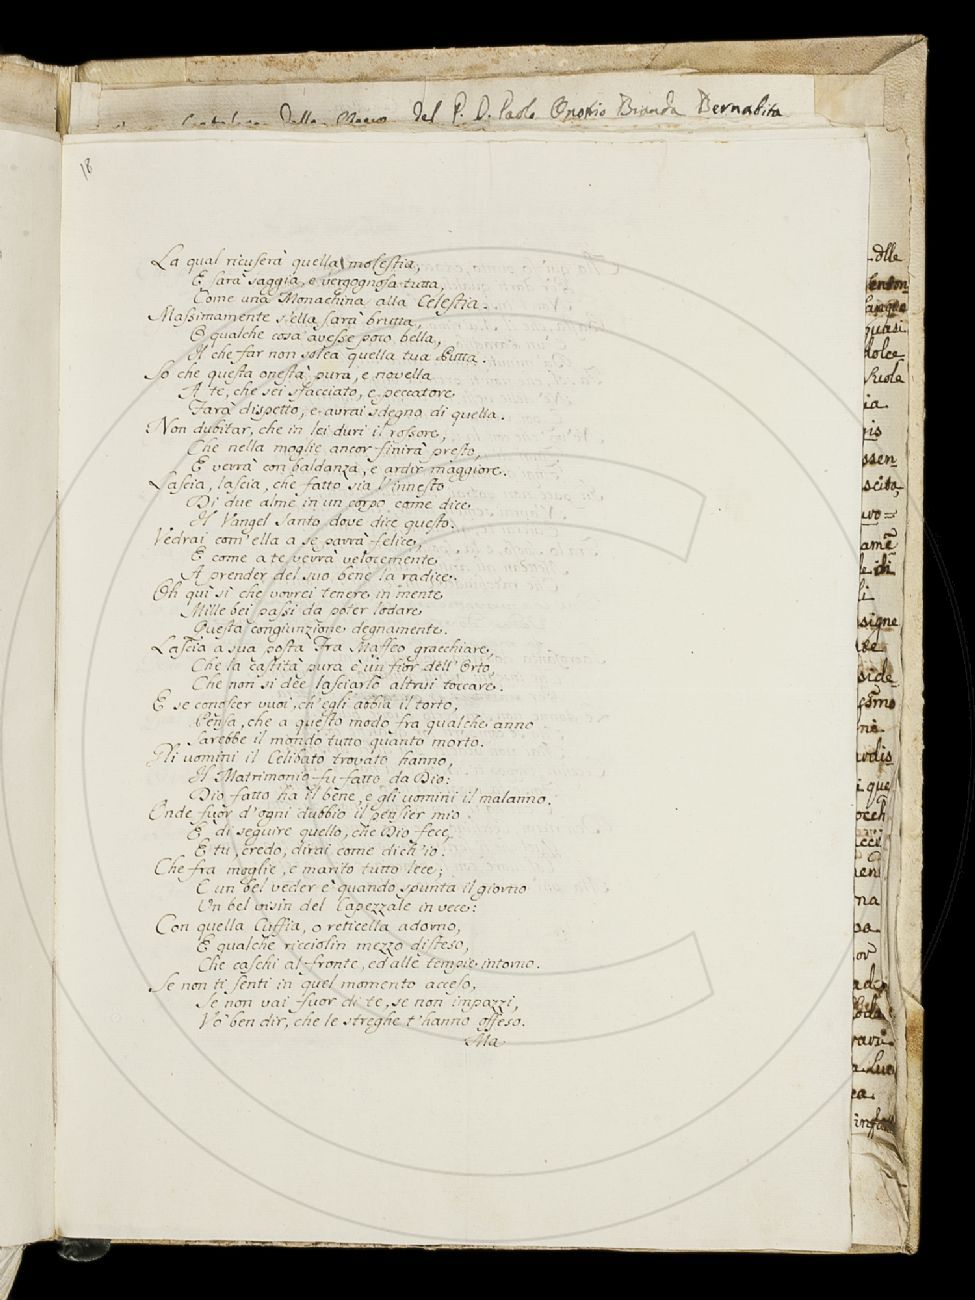 del P. D. Paolo Onofrio Branda Bernabita
18
La qual ricuserà quella molestia,
E sarà saggia, e vergognosa tutta,
Come una Monachina alla Celestia.
Massimamente s'ella sarà brutta,
E qualche cosa avesse poco bella,
Il che far non solea quella tua Putta.
So che questa onestà pura, e novella
A te, che sei sfacciato, e peccatore
Farà dispetto, e avrai sdegno di quella.
Non dubitar, che in lei duri il rossore,
Che nella moglie ancor finirà presto,
E verrà con baldanza, e ardir maggiore.
Lascia, lascia, che fatto sia l'innesto
Di due alme in un corpo come dice
Il Vangel Santo dove dice questo.
Vedrai com'ella a se parrà felice,
E come a te verrà velocemente
A prender del suo bene la radice.
Oh quì sì che vorrei tenere in mente
Mille bei passi da poter lodare
Questa congiunzione degnamente.
Lascia a sua posta Fra Maffeo gracchiare,
Che la castità pura è un fior dell'Orto,
Che non si dee lasciarlo altrui toccare.
E se conoscer vuoi, ch'egli abbia il torto,
Pensa, che a questo modo fra qualche anno
Sarebbe il mondo tutto quanto morto.
Gli uomini il Celibato trovato hanno,
Il Matrimonio fu fatto da Dio:
Dio fatto ha il bene, e gli uomini il malanno.
Onde fuor d'ogni dubbio il pensier mio
E' di seguire quello, che Dio fece,
E tu, credo, dirai come dich'io.
Che fra moglie, e marito tutto lece;
E un bel veder è quando spunta il giorno
Un bel visin del Capezzale in vece:
Con quella Cuffia, o reticella adorno,
E qualche ricciolin mezzo disteso,
Che caschi al fronte, ed alle tempie intorno.
Se non ti senti in quel momento acceso,
Se non vai fuor di te, se non impazzi,
Vo' ben dir, che le streghe t'hanno offeso.
Ma